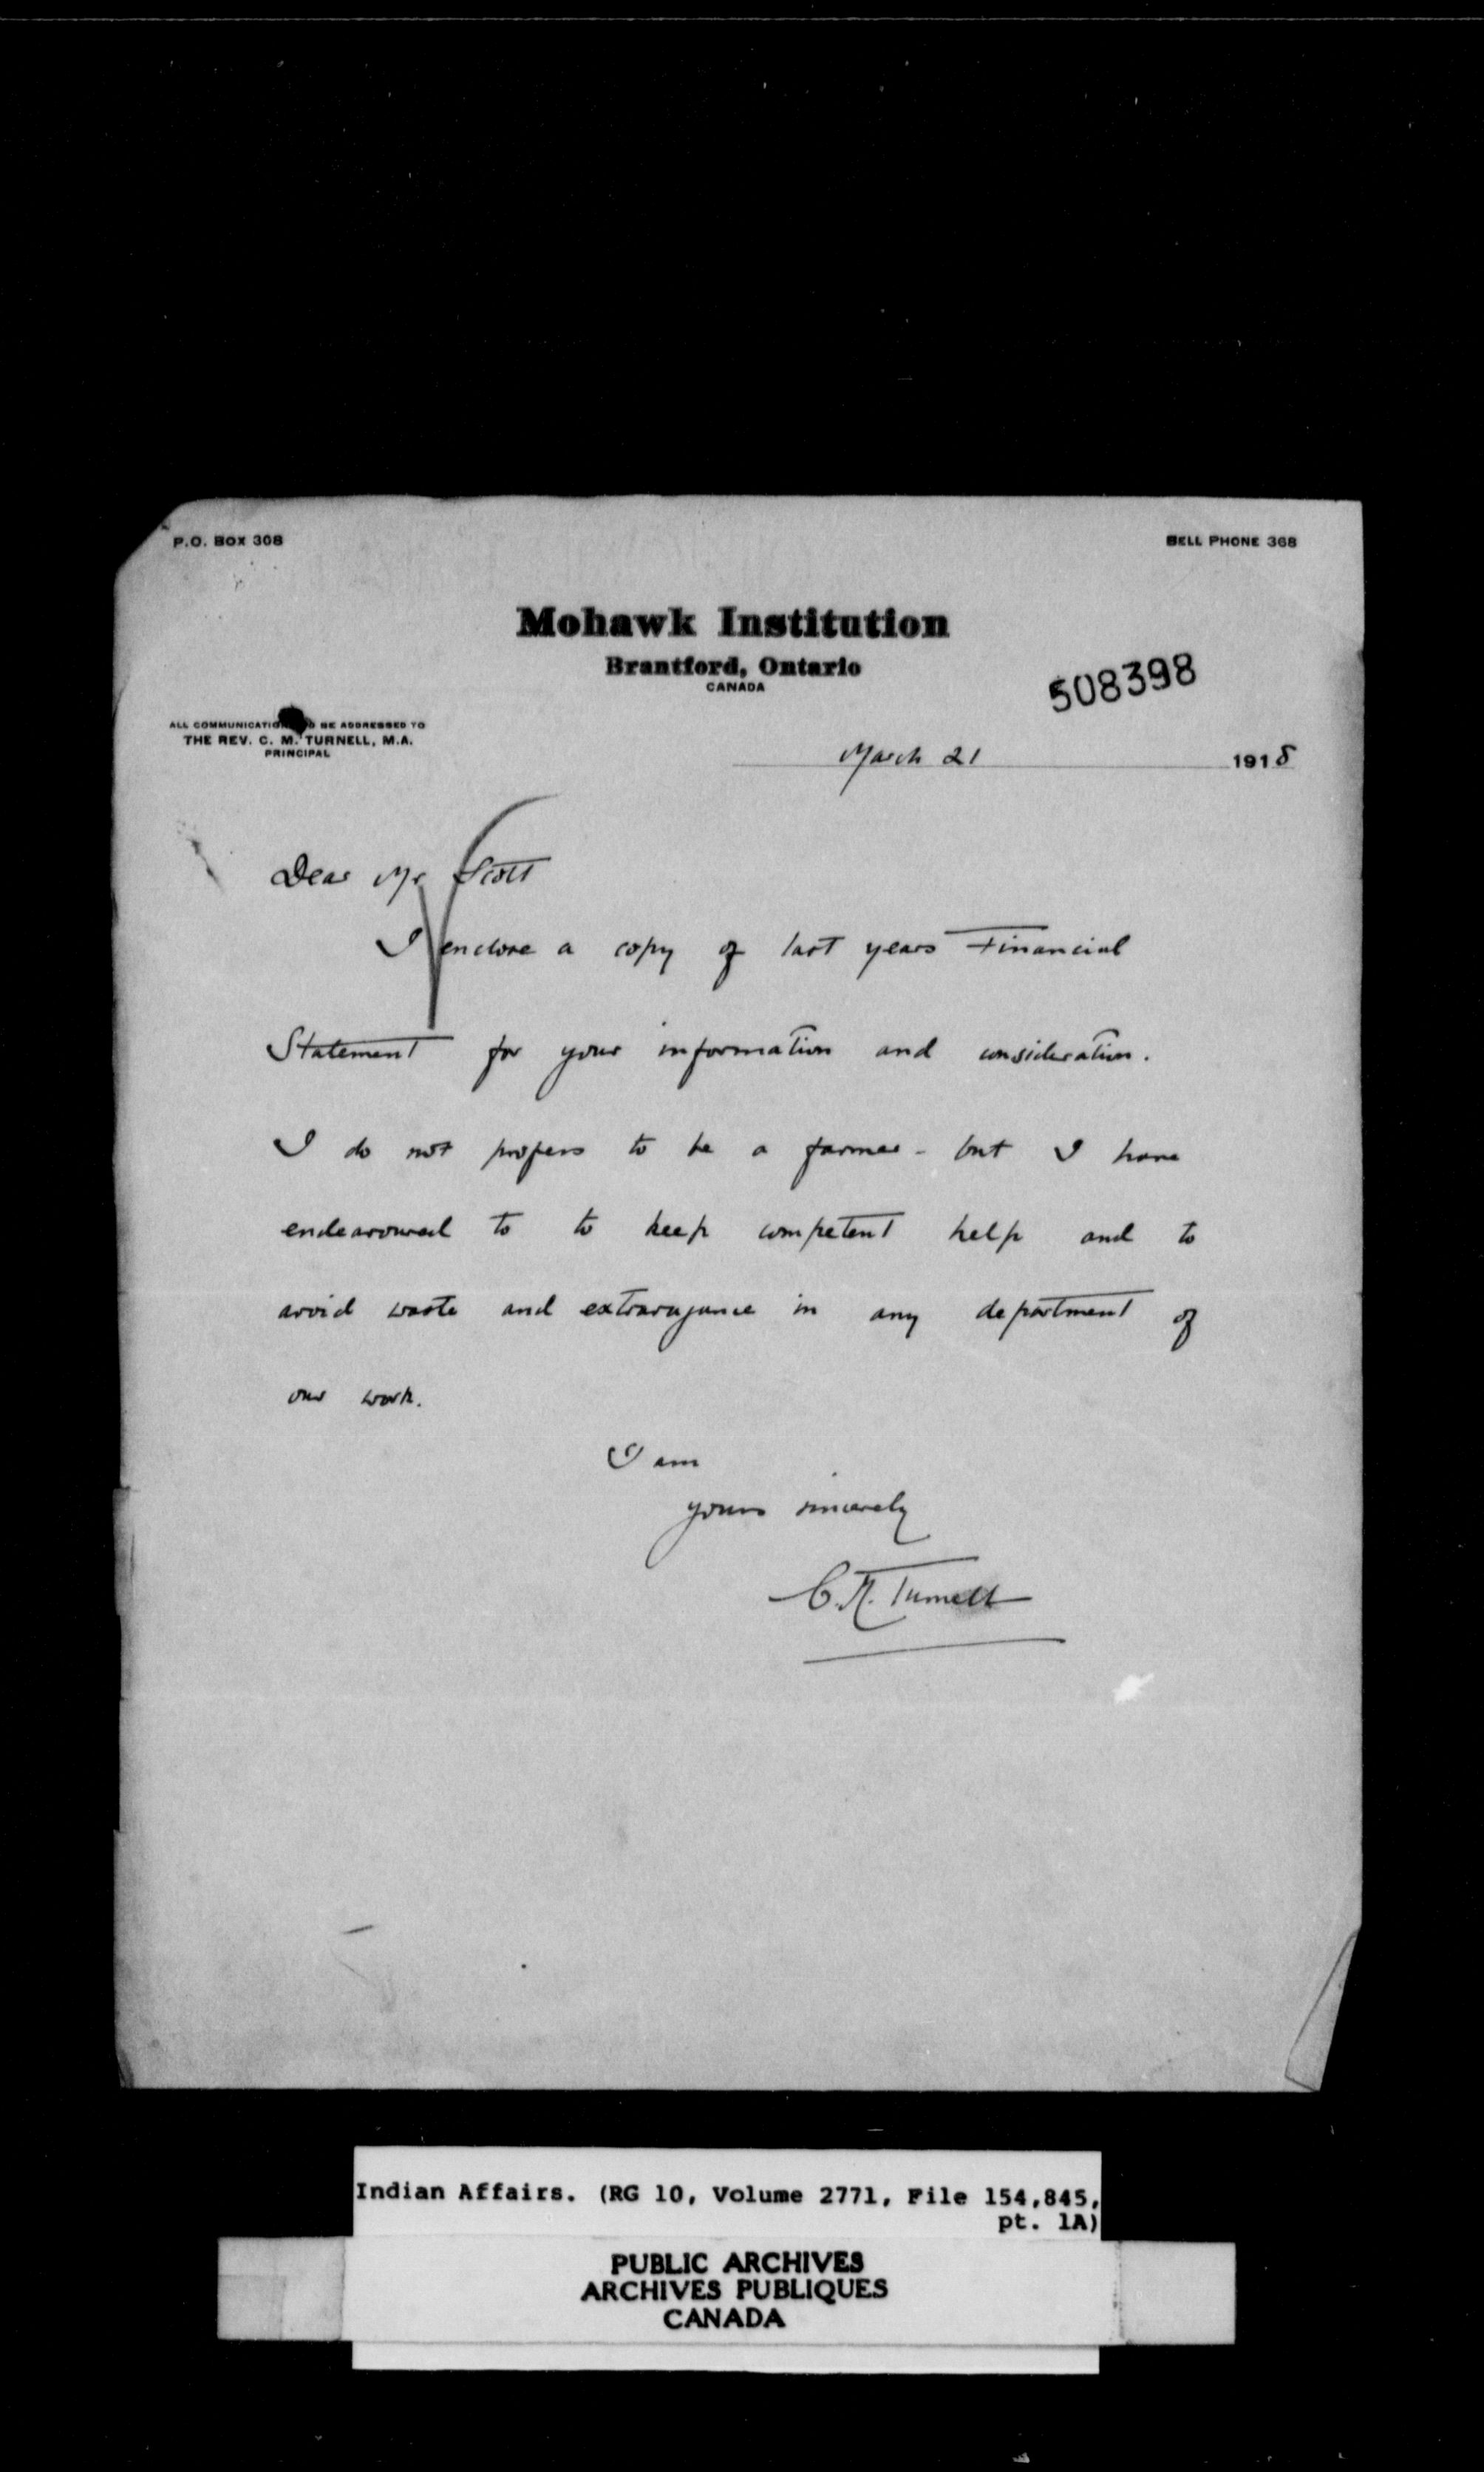 P.O. BOX 308
BELL PHONE 368
Mohawk Institution
Brantford, Ontario
CANADA
508398
ALL COMMUNICATIO BE ADDRESSED TO
THE REV. C. M. TURNELL, M.A.
PRINCIPAL
March 21 1918
Dear Mr Scott
I enclose a copy of last years Financial
Statement for your information and consideration.
I do not profess to be a farmer - but I have
endeavoured to to keep competent help and to
avoid waste and extravagance in any department of
our work.
I am
yours sincerely
C. M. Turnell
Indian Affairs. (RG 10, Volume 2771, File 154,845,
pt. 1A)
PUBLIC ARCHIVES
ARCHIVES PUBLIQUES
CANADA